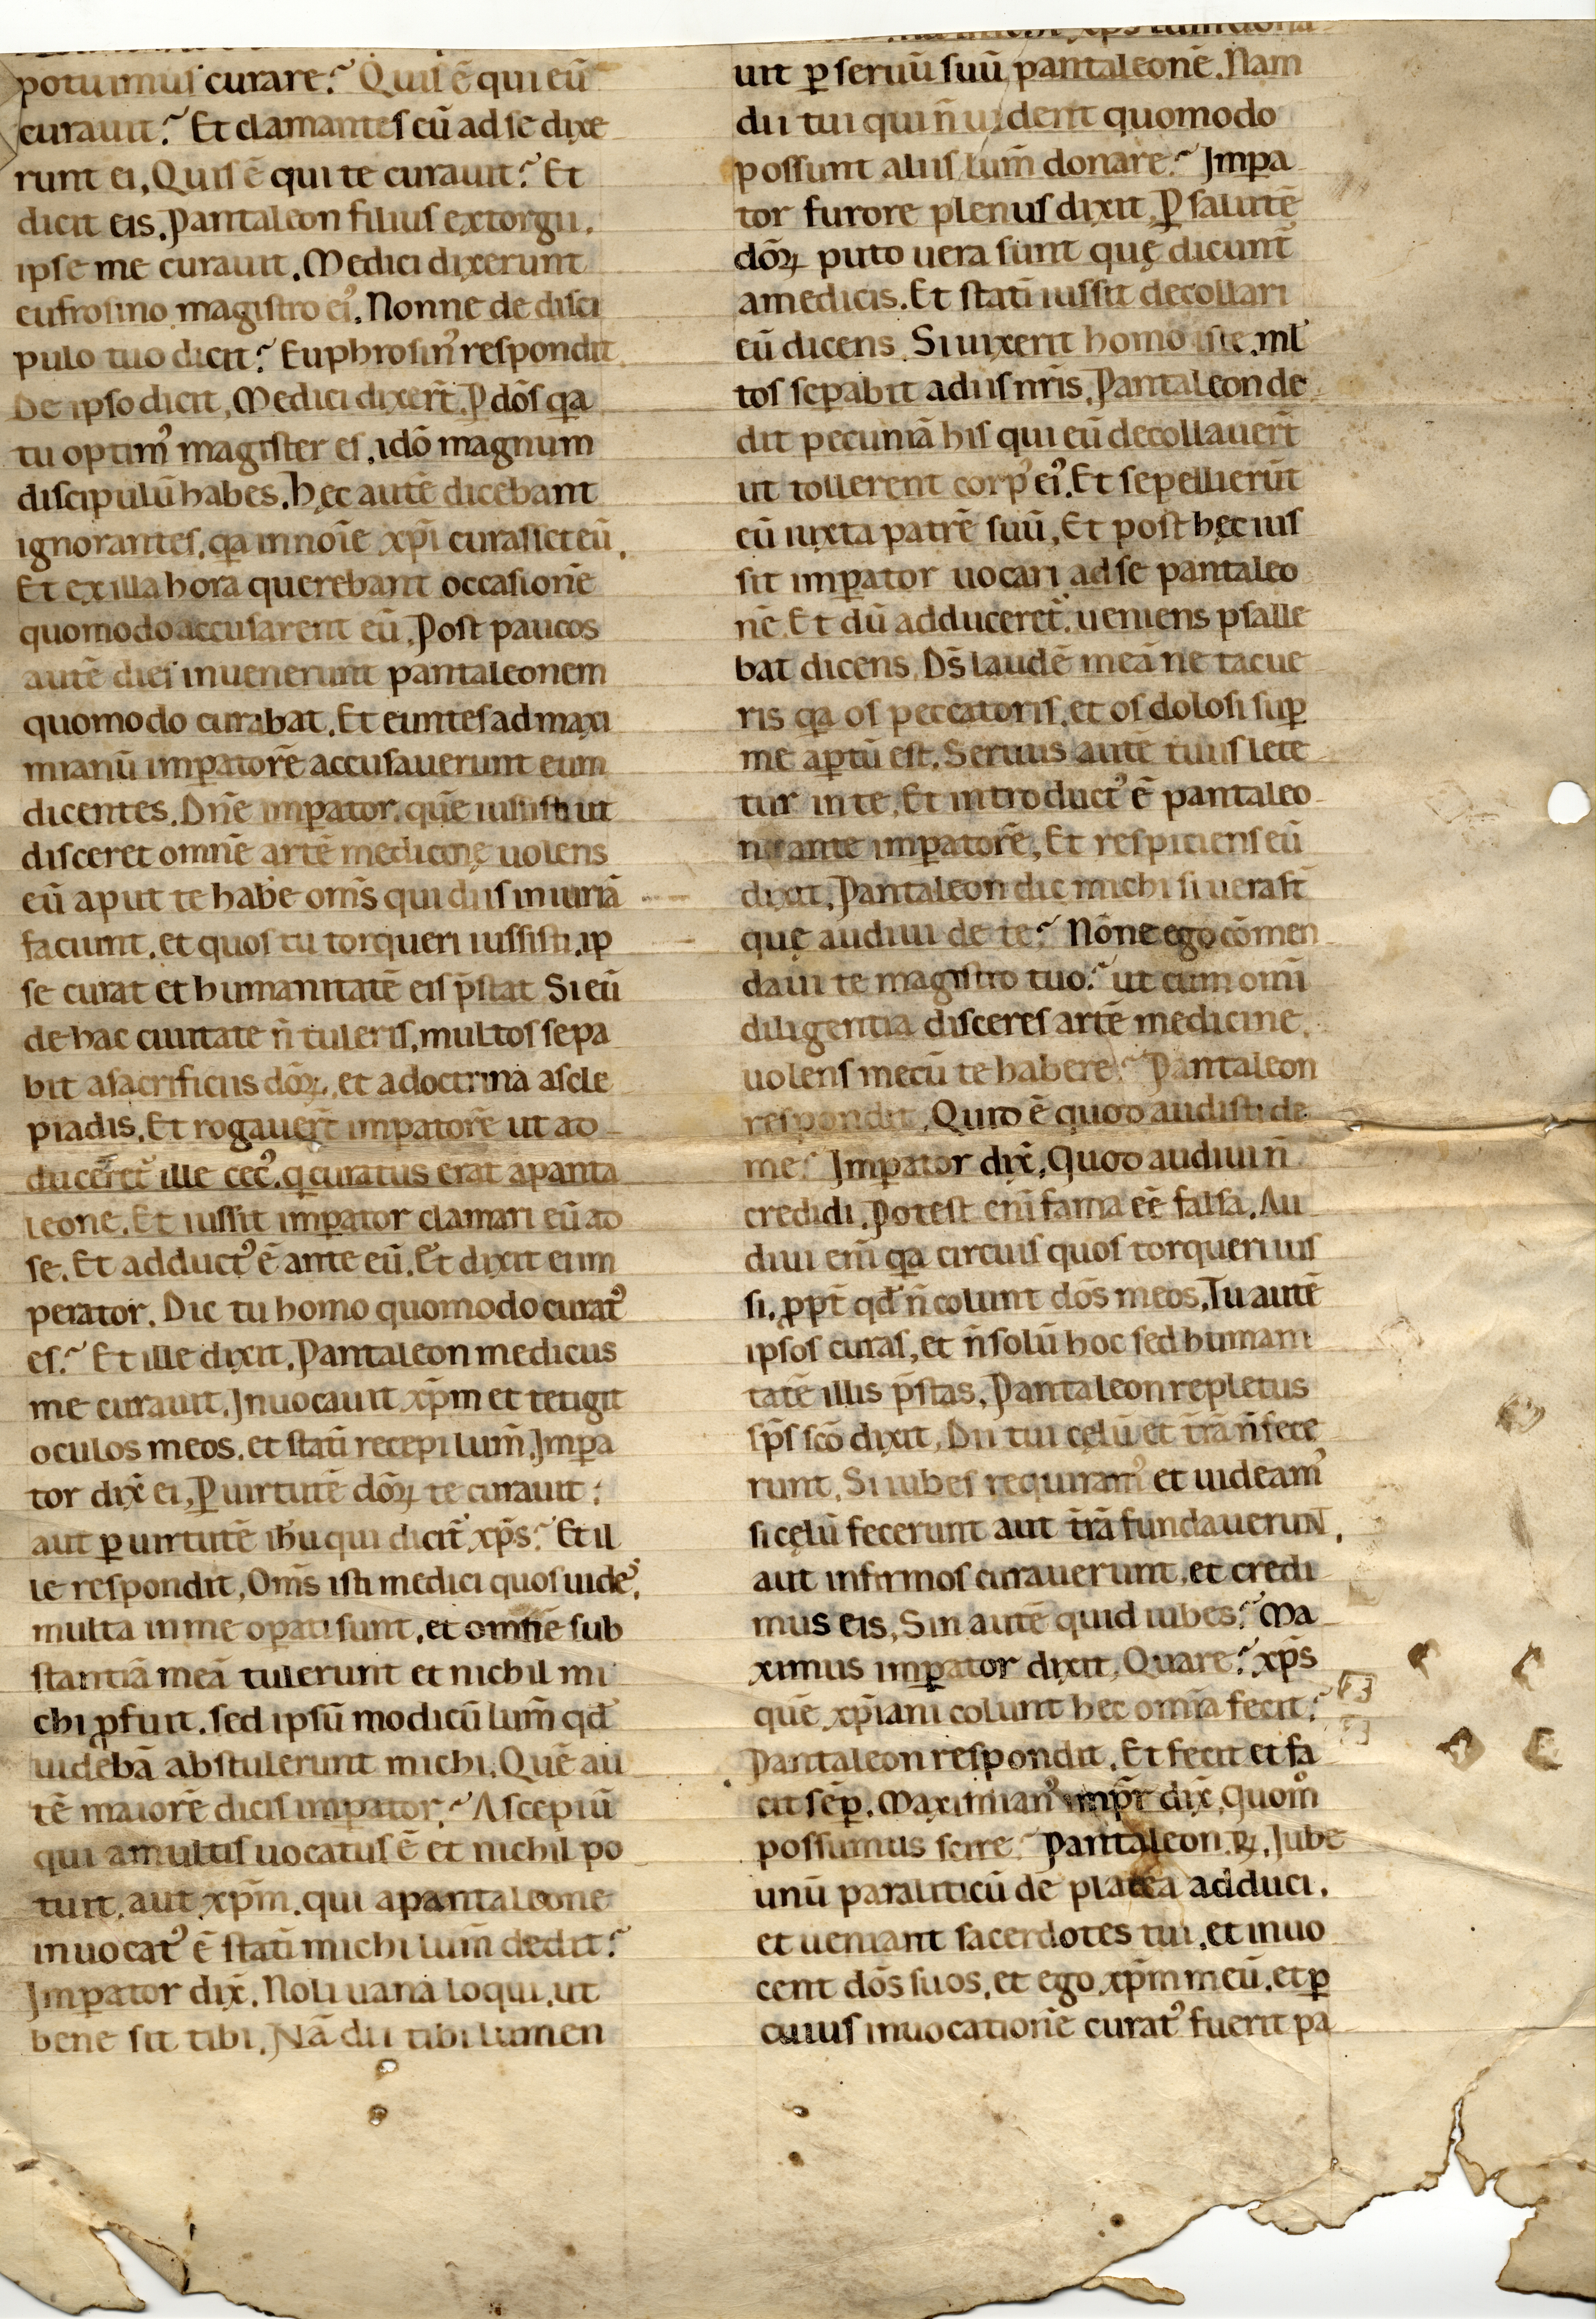 potuimus curare? Quis ē qui eū
curauit? Et clamantes eū ad se dixe
runt ei, Quis ē qui te curauit? Et
dicit eis. Pantaleon filius extorgii.
ipse me curauit. Medici dixerunt
eufrosino magistro ei᾽. Nonne de disci
pulo tuo dicit? Euphrosin᾽ respondit
De ipso dicit. Medici dixer̄t. P dōs qa
tu optim᾽ magister es, idō magnum
discipulū habes. hęc autē dicebant
ignorantes, qa innoīe xp̄i curasset eū.
Et ex illa hora querebant occasionē
quomodo accusarent eū. Post paucos
autē dies inuenerunt pantaleonem
quomodo curabat. Et euntes ad maxi
mianū imꝑatorē accusauerunt eum
dicentes. Dn̄e imꝑator, quē iussisti ut
disceret omnē artē medicinę uolens
eū aput te habe oms̄ qui diis iniuriā
faciunt, et quos tu torqueri iussisti, ip
se curat et humanitatē eis p̄stat Si eū
de hac ciuitate n̄ tuleris, multos sepa
bit a sacrificiis dōꝝ, et a doctrina ascle
piadis. Et rogauer̄t imꝑatorē ut ad
duceret̄ ille cec᾽, q curatus erat a panta
leone. Et iussit imꝑator clamari eū ad
se. Et adduct᾽ ē ante eū. Et dixit ei im
perator. Dic tu homo quomodo curat᾽
es? Et ille dixit. Pantaleon medicus
me curauit. Inuocauit xp̄m et tetigit
oculos meos, et stati recepi lum̄. Imꝑa
tor dix̄ ei, Ꝑ uirtutē dōꝝ te curauit:
aut ꝑ uirtutē ihu qui dicit̄ xp̄s? Et il
le respondit, Oms̄ isti medici quos uide᾽,
multa in me oꝑati sunt, et omnē sub
stantiā meā tulerunt et nichil mi
chi ꝓfuit. sed ipsū modicū lum̄ qd̄
uidebā abstulerunt michi. Quē au
tē maiorē dicis imꝑator? Ascepiū
qui a multis uocatus ē et nichil po
tuit, aut xp̄m, qui a pantaleone
inuocat᾽ ē stati michi lum̄ dedit?
Imꝑator dix̄. Noli uana loqui, ut
bene sit tibi. Nā dii tibi lumen
uit ꝑ seruū suū pantaleonē. Nam
dii tui qui n̄ uident quomodo
possunt aliis lum̄ donare? Imꝑa
tor furore plenus dixit, Ꝑ salutē
dōꝝ puto uera sunt quę dicunt̄
a medicis. Et stati iussit decollari
eū dicens. Si uixerit homo iste, ml᾽
tos seꝑabit a diis nr̄is. Pantaleon de
dit pecuniā his qui eū decollauer̄t
ut tollerent corp᾽ ei᾽. Et sepellierūt
eū iuxta patrē suū. Et post hęc ius
sit imꝑator uocari ad se pantaleo
nē. Et dū adduceret̄, ueniens psalle
bat dicens. Ds̄ laudē meā ne tacue
ris qa os peccatoris, et os dolosi suꝑ
me aꝑtū est. Seruus autē tuus lete
tur in te. Et introduct᾽ ē pantaleo
n ante imꝑatorē. Et respiciens eū
dixit. Pantaleon dic michi si uera st̄
quę audiui de te? Nōne ego cōmen
daui te magistro tuo? ut cum omī
diligentia disceres artē medicine,
uolens mecū te habere? Pantaleon
respondit. Quid ē quod audisti de
me? Imꝑator dix̄. Quod audiui n̄
credidi. Potest enī fama eē falsa. Au
diui enī qa circuis quos torqueri ius
si, ꝓpt̄ qd̄ n̄ colunt dōs meos. Tu autē
ipsos curas, et n̄ solū hoc sed humani
tatē illis p̄stas. Pantaleon repletus
sp̄s scō dixit. Dii tui cęlū et tr̄ā n̄ fece
runt. Si iubes requiram᾽ et uideam᾽
si cęlū fecerunt aut tr̄ā fundauerunt,
aut infirmos curauerunt, et credi
mus eis. Sin autē quid iubes? Ma
ximus imꝑator dixit. Quare? xp̄s
quē xp̄iani colunt hec omīa fecit?
Pantaleon respondit. Et fecit et fa
cit sēꝑ. Maximian᾽ imp̄r dix̄. Quom̊
possumus scire? Pantaleon ꝶ. Iube
unū paraliticū de platea adduci,
et ueniant sacerdotes tui, et inuo
cent dōs suos, et ego xp̄m meū, et ꝑ
cuius inuocationē curat᾽ fuerit pa